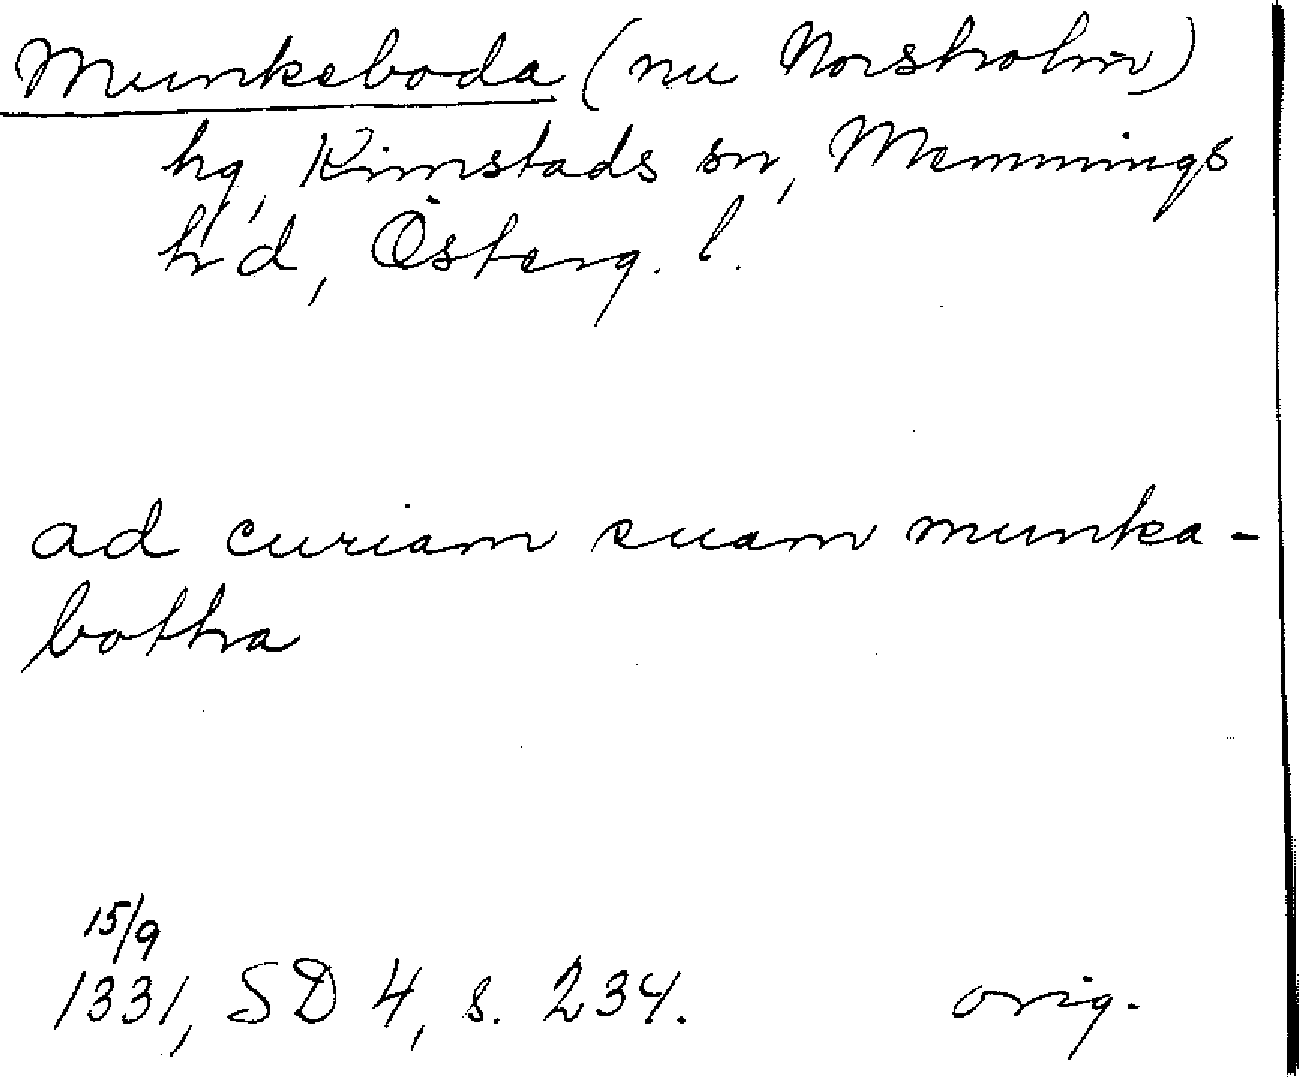 Munkeboda (nu Norsholm)
hg, Kimstads sn, Memmings
hd, Österg. l.
ad curiam suam munka-
bothra
15/9
1331, SD 4, s. 234. orig.